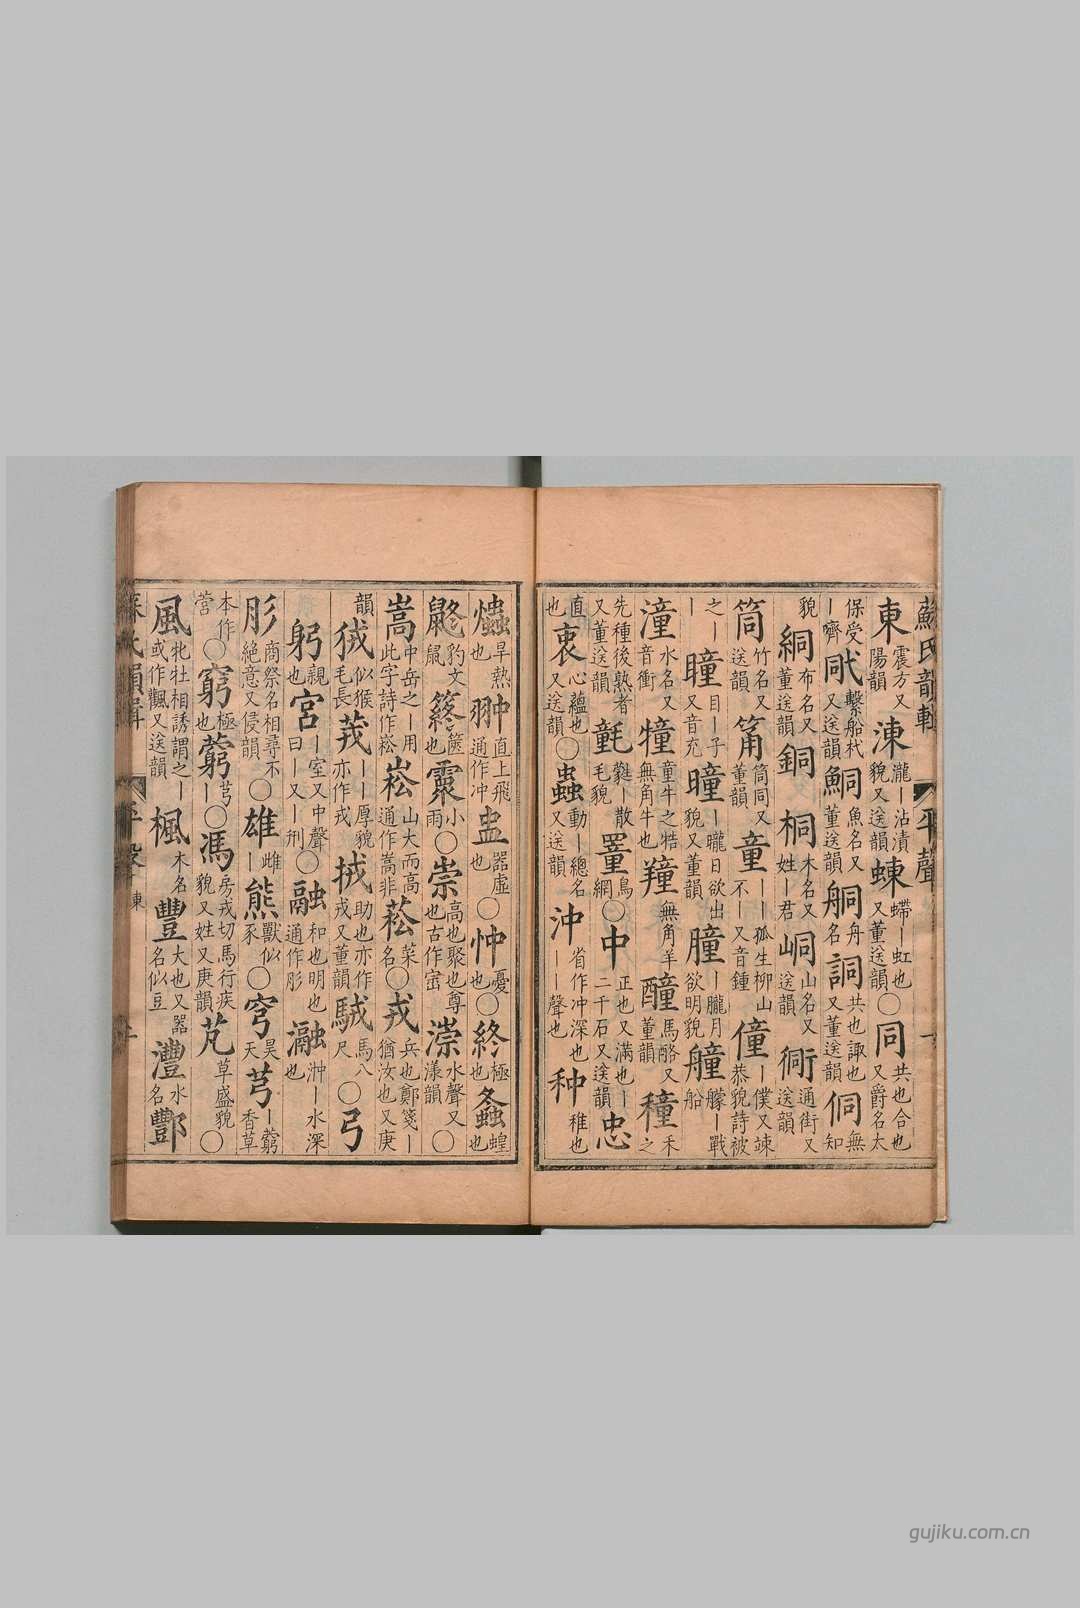 蘇氏韻輯 平聲 一
東震方又陽韻 涷瀧丨沾漬貌又送韻 蝀螮丨虹也又董送韻〇同共也合也又爵名太
保受丨嚌 𢓘繫船杙又送韻 鮦魚名又董送韻 舸舟名 詞共也諏也又董送韻 侗無知
貌 絧布名又董送韻 銅 桐木名又姓丨君 峒山名又送韻 衕通街又送韻
筒竹名又送韻 筩筒同又董韻 童丨丨狐生柳山不丨又音鍾 僮丨僕又竦恭貌詩被
之丨丨 瞳目丨子又音充 曈丨曨日欲出貌又董韻 朣丨朧月欲明貌 艟艨丨戰船
潼水名又音衝 犝童牛之牿無角牛也 羵無角羊 醰馬酪又董韻 穜禾之
先種後熟者又董送韻 氃氋丨散毛貌 罿鳥網〇中正也又滿也丨二千石又送韻 忠
直也 衷心蘊也又送韻〇蟲動丨總名又送韻 沖省作冲深也丨丨聲也 种稚也
爞旱熱也 翀直上飛通作冲 盅器虛也〇忡憂也〇終極也 螽蝗也
鼨豹文鼠 䈺篋也 霥小雨〇崇高也聚也尊也古作崈 漴水聲又漾韻〇
嵩中岳之丨用此字詩作崧 崧山大而高通作嵩非 菘菜名〇戎兵也鄭箋丨猶汝也又庚
韻 狨似猴毛長 茙丨厚貌亦作戎 㧡助也亦作戎又董韻 駥馬八尺〇弓
躬親也 宮丨室又中聲曰丨又丨刑〇融和也明也通作肜 瀜沖丨水深也
肜商祭名相尋不絕意又侵韻〇雄雌丨 熊獸似豕〇穹昊天 芎丨藭香草
本作營〇窮極也 藭芎丨〇馮房戎切馬行疾貌又姓又庚韻 芃草盛貌〇
風牝牡相誘謂之丨或作飌又送韻 楓木名 豐大也又器名似豆 灃水名 酆
蘇氏韻輯 平聲 東 一
gujiku.com.cn